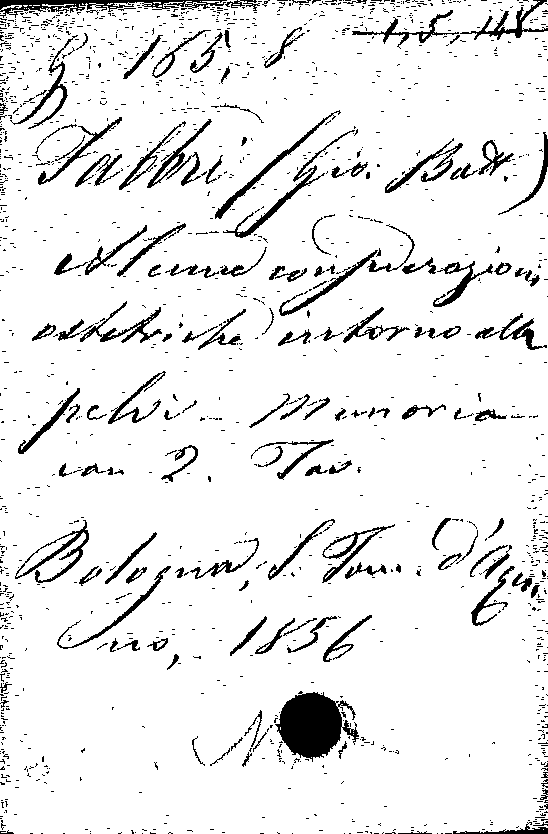 G. 165, 8 1, 5, 148
Fabbri (Gio. Batt.)
Alcune considerazioni
ostetriche intorno alla
pelvi - Memoria
con 2. Tav.
Bologna, S. Tom. d'Aqui
no, 1856